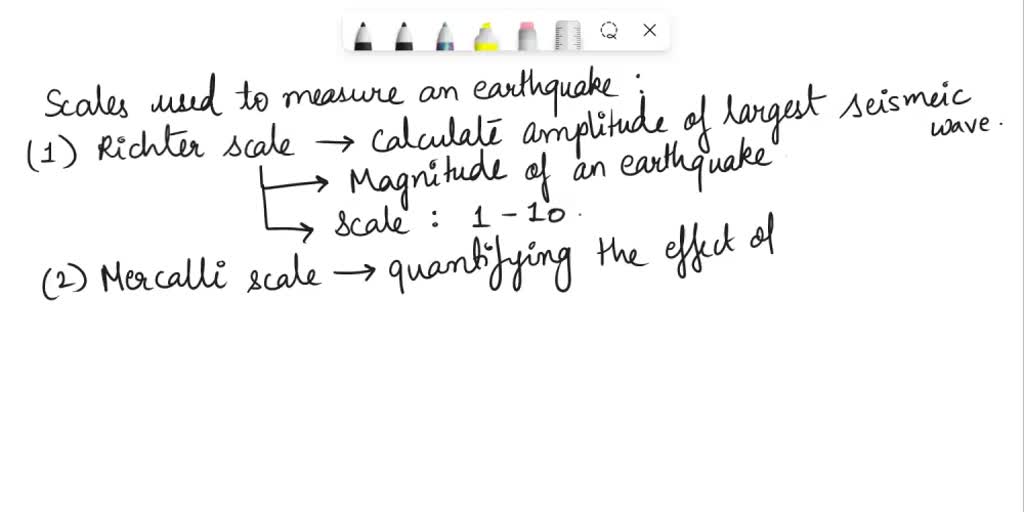 Scales used to measure an earthquake :
(1) Richter scale → Calculate amplitude of largest seismeic wave.
→ Magnitude of an earthquake
→ Scale : 1 - 10.
(2) Mercalli scale → quantifying the effect of